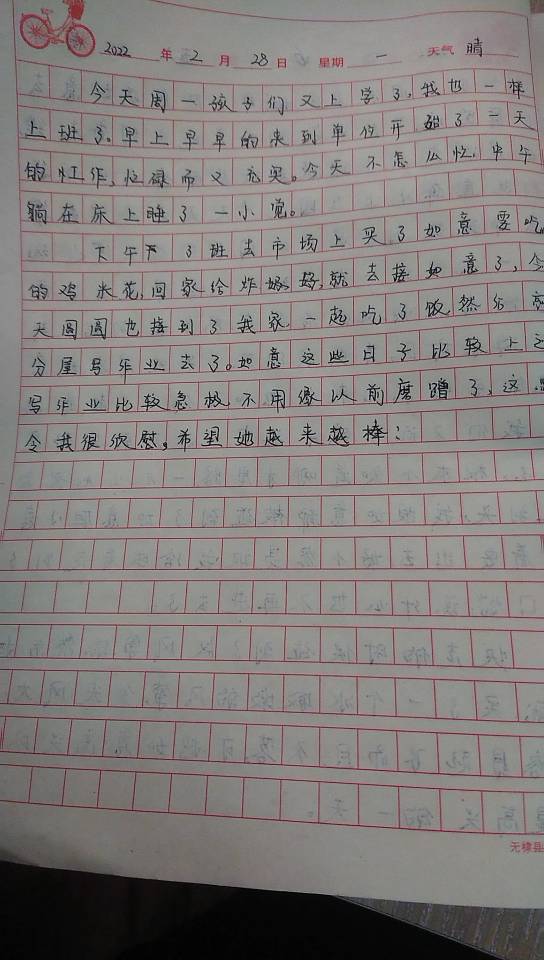 2022 年 2 月 28 日 星期 一 天气 晴
今天周一孩子们又上学了,我也一样
上班了。早上早早的来到单位开始了一天
的忙作,忙碌而又充实。今天不怎么忙,中午
躺在床上睡了一小觉。
下午下了班去市场上买了如意要吃
的鸡米花,回家给炸好,就去接如意了,今
天圆圆也接到了我家,一起吃了饭,然后
分屋写作业去了。如意这些日子比较上
写作业比较急救不用像以前磨蹭了,这
令我很欣慰。希望她越来越棒!
无棣县